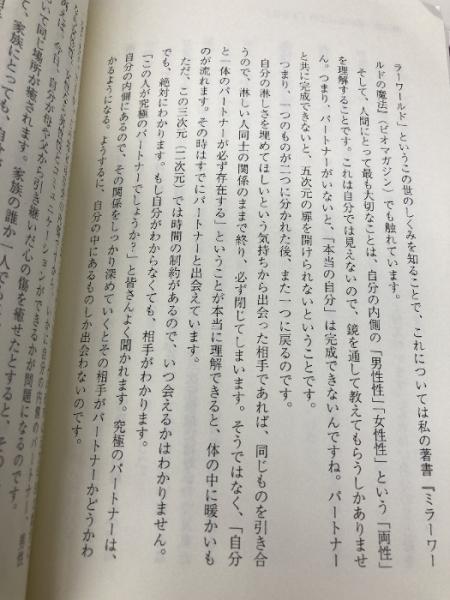 ラーワールド」というこの世のしくみを知ることで、これについては私の著書『ミラーワー
ルドの魔法』(ビオマガジン)でも触れています。
そして、人間にとって最も大切なことは、自分の内側の「男性性」「女性性」という「両性」
を理解することです。これは自分では見えないので、鏡を通して教えてもらうしかありませ
ん。つまり、パートナーがいないと、「本当の自分」は完成できないんですね。パートナー
と共に完成できないと、五次元の扉を開けられないということです。
つまり、一つのものが二つに分かれた後、また一つに戻るのです。
自分の淋しさを埋めてほしいという気持ちから出会った相手であれば、同じものを引き合
うので、淋しい人同士の関係のままで終り、必ず閉じてしまいます。そうではなく、「自分
と一体のパートナーが必ず存在する」ということが本当に理解できると、体の中に暖かいも
のが流れます。その時はすでにパートナーと出会えています。
ただ、この三次元(二次元)では時間の制約があるので、いつ会えるかはわかりません。
でも、絶対にわかります。もし自分がわからなくても、相手がわかります。
「この人が究極のパートナーでしょうか?」と皆さんよく聞かれます。究極のパートナーは、
自分の内側にあるので、その関係をしっかり深めていくとその相手がパートナーかどうかわ
かるようになる。ようするに、自分の中にあるものしか出会わないのです。
自分の内側のパートナー、
コミュニケーションができるかが問題になるのです。
今日、自分が母や父から引き継いだ心の傷を癒せたとすると、その
いて同じ場所が癒されます。家族の誰か一人で
て、家族にとっても、